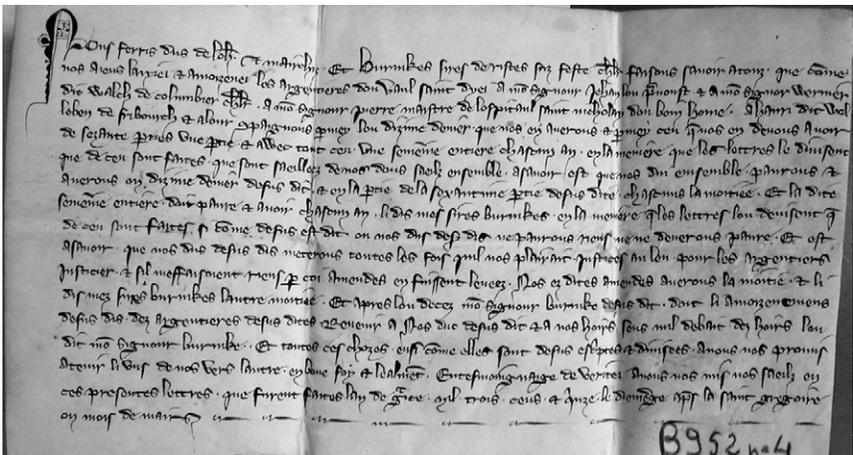 Nous ferris dus de lohr. & marchis. Et Burnikes sires de ristes soz feste chlr faisons savoir a touz. que come
nos aiens laixiei & amoizenei les argentieres dou vaul saint dyei a mo signour Jehan lou prevost. & a mo signor Wernier
dit Walch de columbier chlr. A mo signour pierre maistre de lospitaul saint nicholais dou bon home. A hanri dit Wel
leben de fribourch & a lour compaignons permey lou dizime denier que nos en averons & permey ceu que nos en devons avoir
de sexante parties une partie & avec tout ceu une semenne entiere chascun an. en la meniere que les lettres le devisent
que de ceu sont faites. que sont saellees de nos dous saels ensemble. asavoir est que nos dui ensemble. panrons &
averons ou dizime denier desus dit. & en la partie de la sexantime partie desus dite. chascuns la moitie. Et la dite
semenne entiere. doit panre & avoir chascun an. li dis mes sires burnikes. en la meniere que les lettres lou devisent que
de ceu sont faites. si come desus est dit. on nos dus desus dis ne panrons riens ne ne deverons panre. Et est
asavoir. que nos dus desus dis meterons toutes les fois quil nos plairait. justices au leu pour les argentiers
justicier. & sil meffaisoient riens per coi amendes en fuissent levees. Nos ez dites amendes averons la moitie. & li
dis mez sires burnikes lautre moitie. Et apres lou decez mo signour burnike desus dit. doit li amoizenemens
desus dis. dez argentieres desus dites revenir a Nos duc desus dit & a nos hoirs sens nul debat dez hoirs lou
dit mo signour burnike. Et toutes ces chozes. ensi come elles sont desus escriptes & divisees. avons nos promis
a tenir li uns de nos vers lautre. en bone foy & lealment. En tesmoingnaige de veritei avons nos mis nos saelz en
ces presentes lettres. que furent faites lan de grace. mil. trois. cens. & Unze. le diemenge apres la saint gregoire
ou mois de mairs
B952 no 4